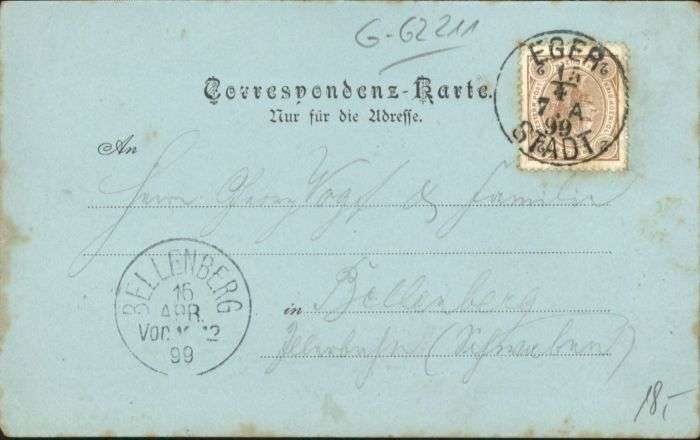 G-62211
EGER
15
4
7 A
99
STADT
Correspondenz-Karte.
Nur für die Adresse.
An
Herrn Georg Vogt & Familie
BELLENBERG
16
APR.
Vor. 12
99
in Bellenberg
Illerbahn (Schwaben)
18,-